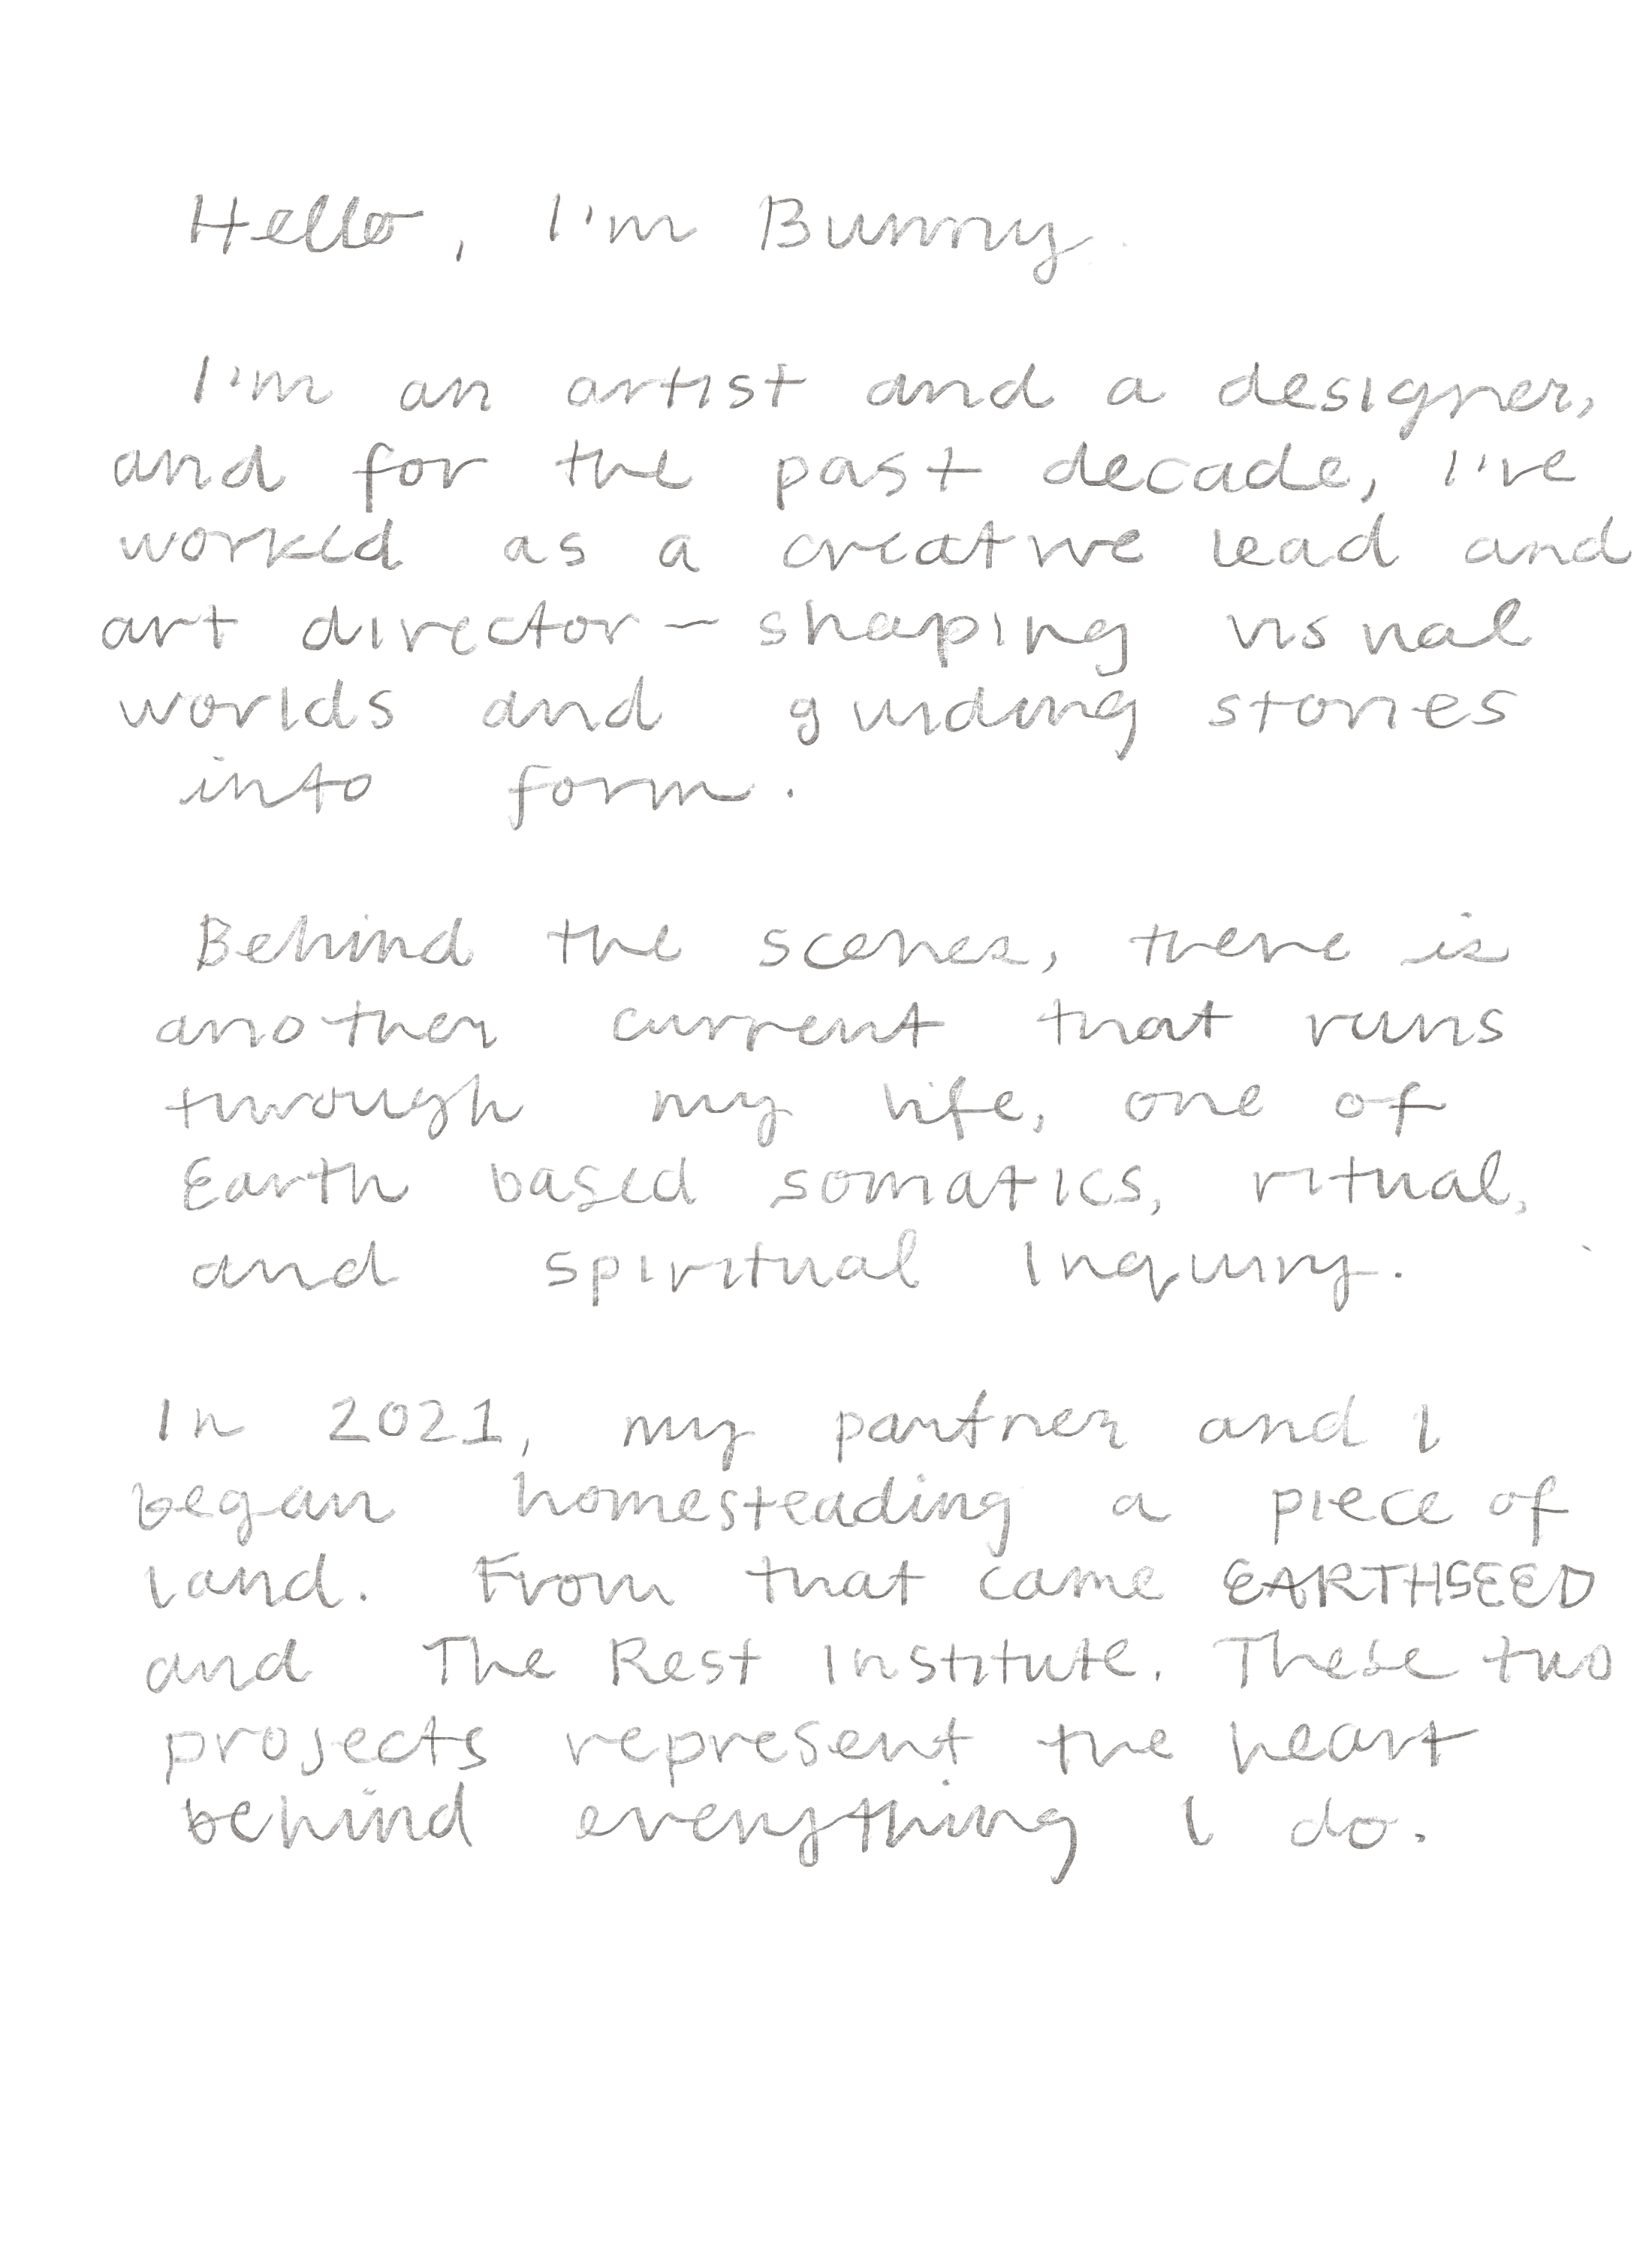 Hello, I'm Bunny.
I'm an artist and a designer,
and for the past decade, I've
worked as a creative lead and
art director – shaping visual
worlds and guiding stories
into form.
Behind the scenes, there is
another current that runs
through my life, one of
Earth based somatics, ritual,
and spiritual inquiry.
In 2021, my partner and I
began homesteading a piece of
land. From that came EARTHSEED
and The Rest Institute. These two
projects represent the heart
behind everything I do.